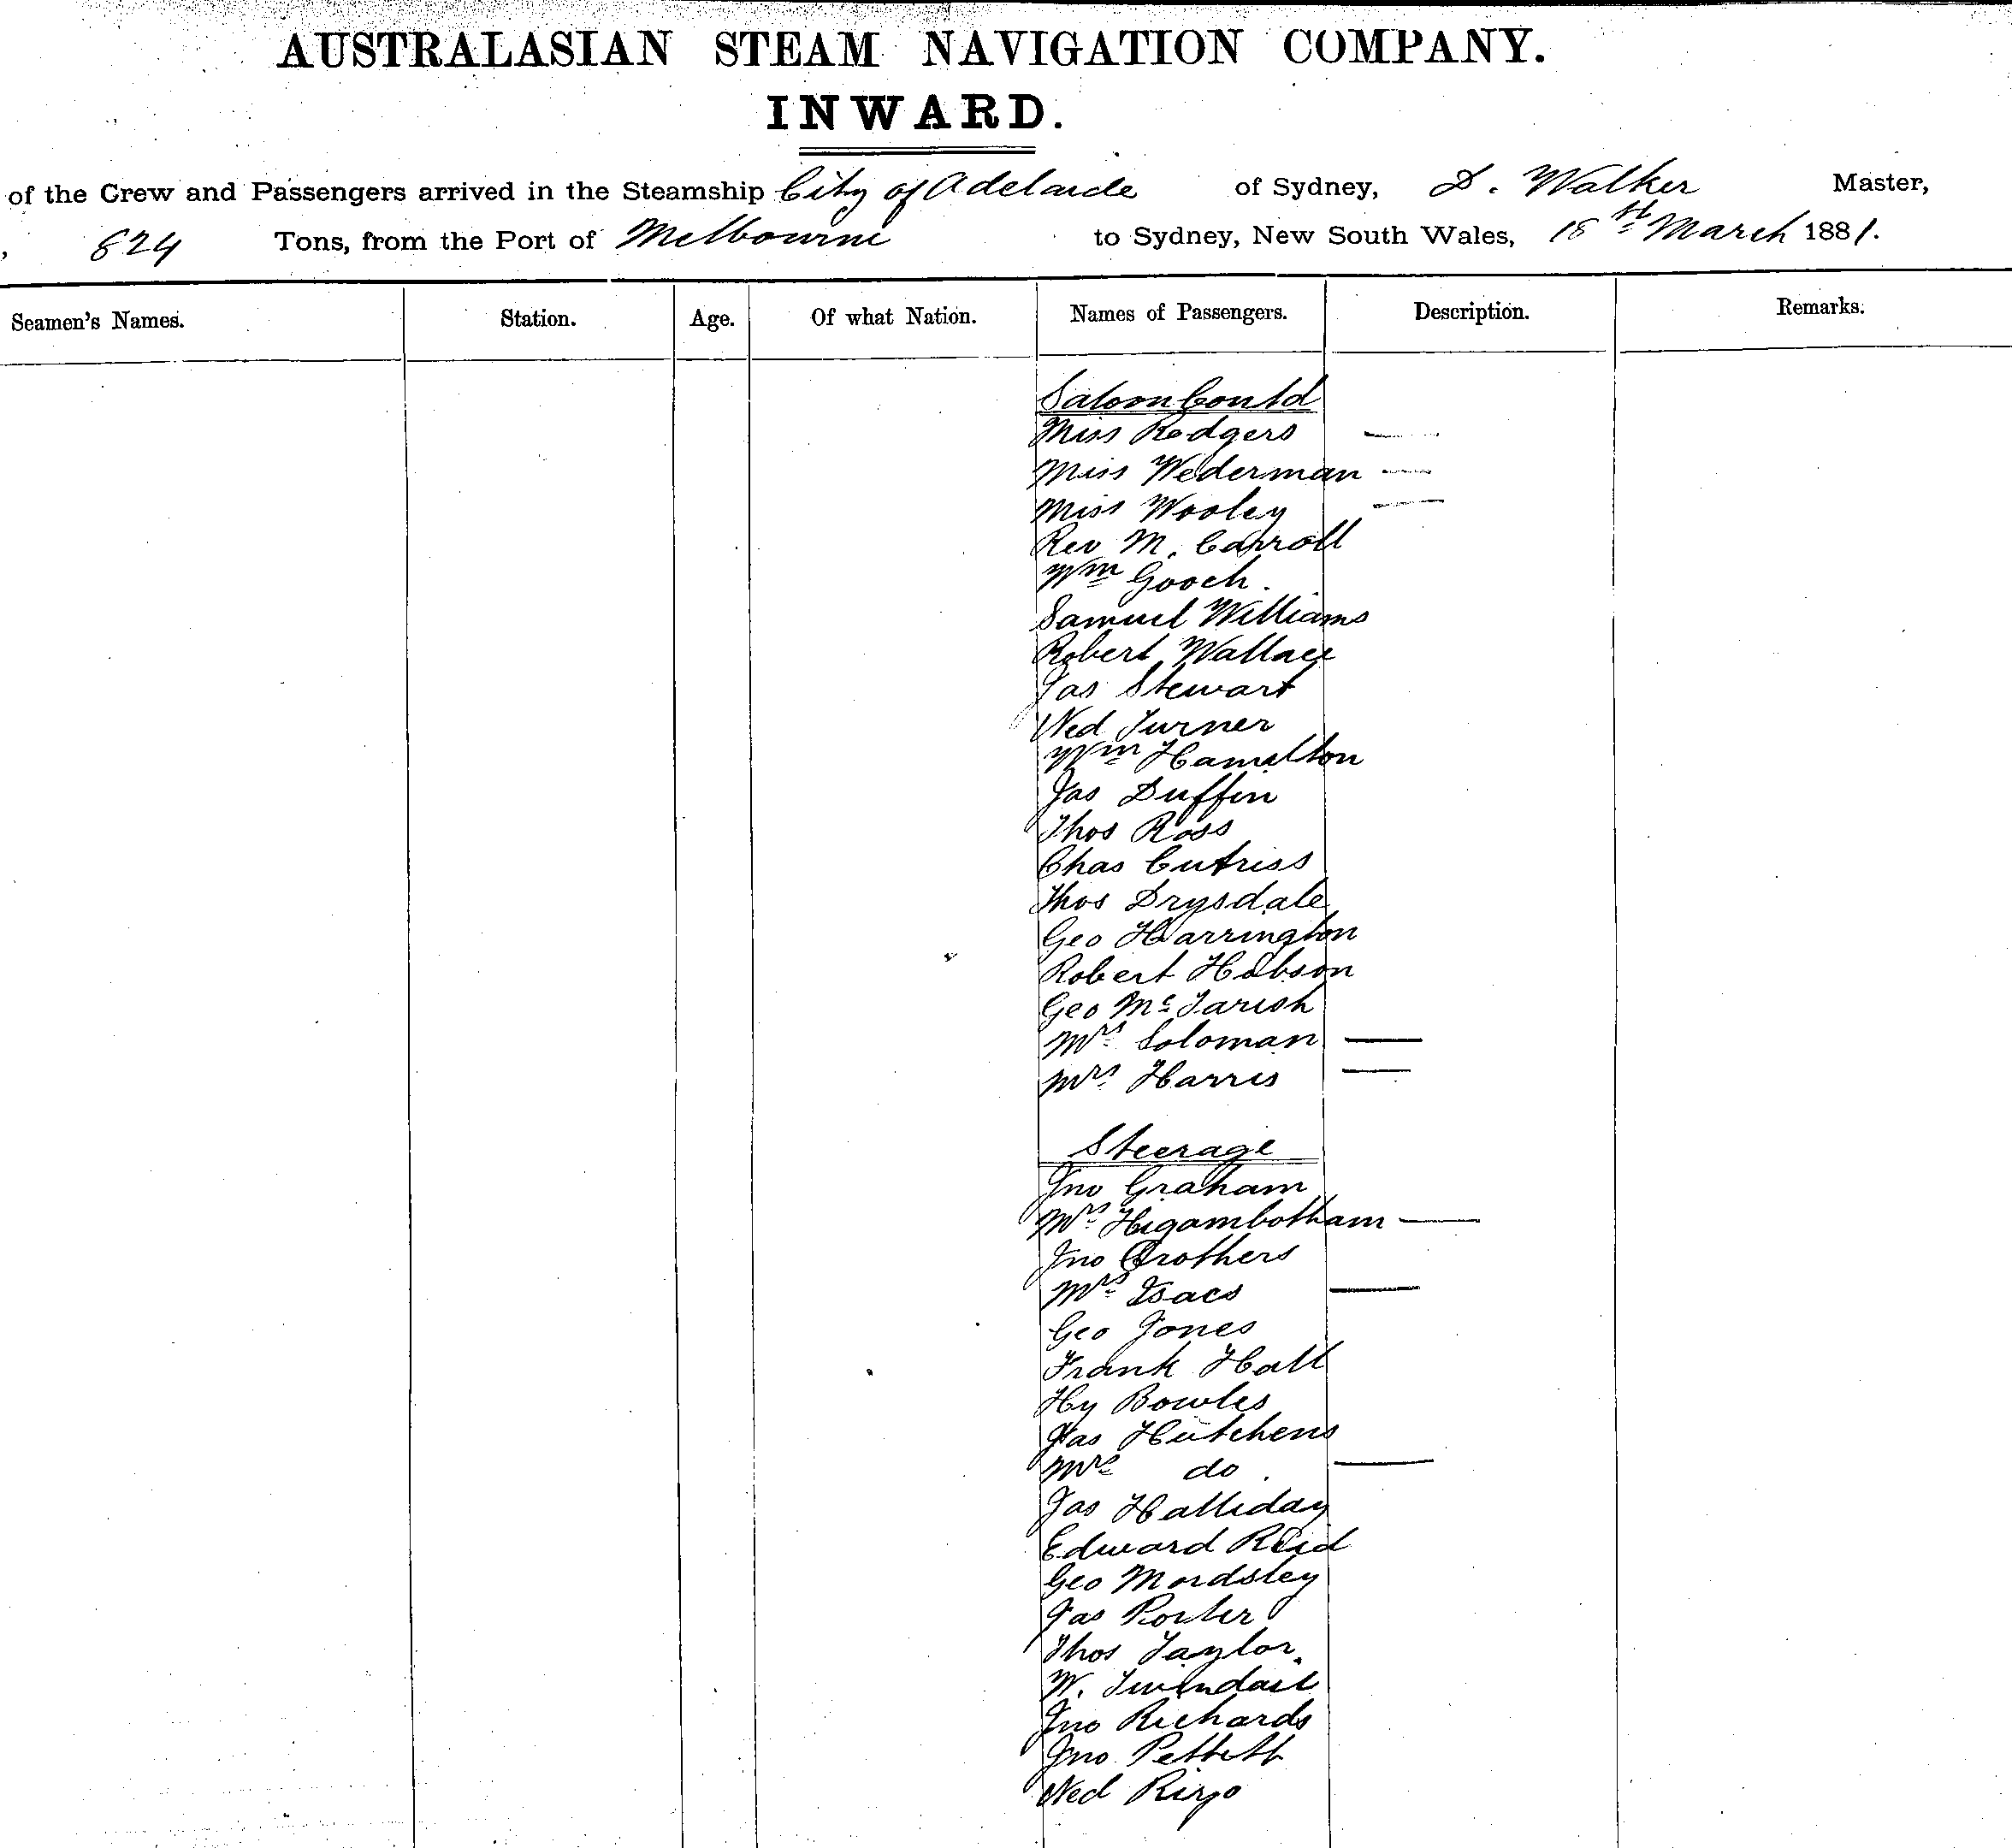 AUSTRALASIAN STEAM NAVIGATION COMPANY.
INWARD.
of the Crew and Passengers arrived in the Steamship City of Adelaide of Sydney, D. Walker Master,
, 824 Tons, from the Port of Melbourne to Sydney, New South Wales, 18th March 1881.
Seamen's Names. Station. Age. Of what Nation. Names of Passengers. Description. Remarks.
Saloon Contd
Miss Rodgers —
Miss Wederman —
Miss Wooley —
Rev M. Carroll
Wm Gooch.
Samuel Williams
Robert Wallace
Jas Stewart
Ned Turner
Wm Hamilton
Jas Duffin
Thos Ross
Chas Cutriss
Thos Drysdale
Geo Harrington
Robert Hobson
Geo Mc Tarish
Mrs Soloman —
Mrs Harris —
Steerage
Jno Graham
Mrs Higambotham —
Jno Crothers
Mrs Isacs —
Geo Jones
Frank Hall
Hy Bowles
Jas Hutchens
Mrs do. —
Jas Halliday
Edward Reid
Geo Mordsley
Jas Porter
Thos Taylor.
W.
Jno Richards
Jno Pettett
Ned Ringo